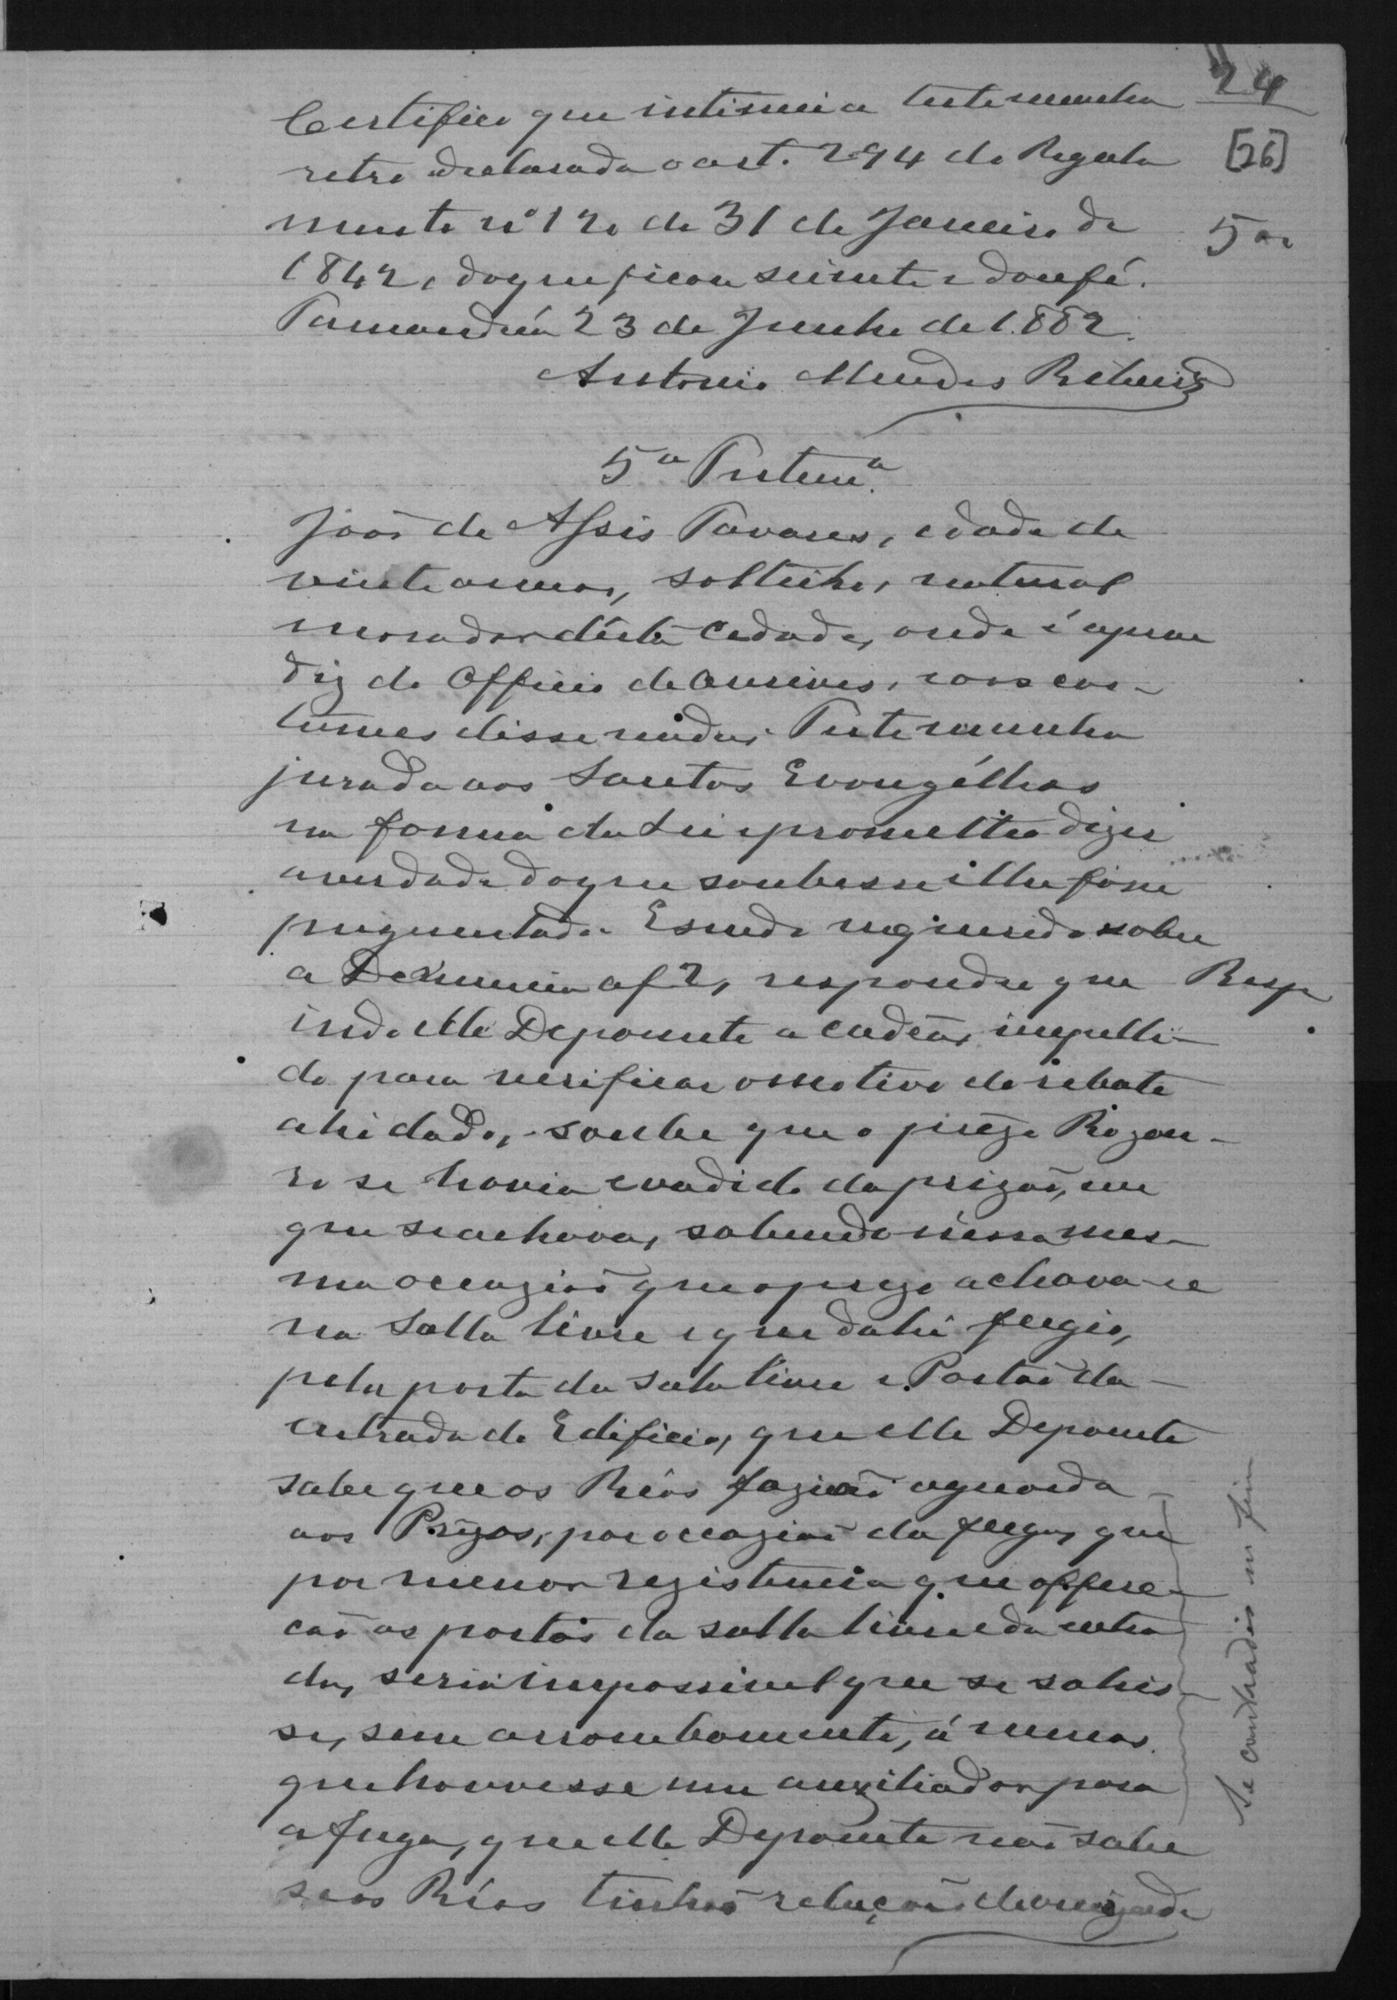 24
[26]
5ª
Certifico que intimei a testemunha
retro declarada o art. 294 do Regula
mento nº 120 de 31 de Janeiro de
1842, do que ficou sciente e dou fé.
Tamanduá 23 de Junho de 1.882.
Antonio Mendes
5ª Testemª
João de Assis Tavares, edade de
vinte annos, solteiro, natural
morador d'ésta Cedade, onde é apren
diz do Officio de Ourives, e aos cos-
tumes disse nada; Testemunha
jurada aos Santos Evongélhos
na forma da Lei e prometteo dizer
a verdade do que soubesse e lhe fosse
preguntado. E sendo inquerido sobre
a Denuncia a f 2, respondeo que
Resp
indo elle Depoente a cadêa, impelli-
do para verificar o motivo do rebate
ahi dado, soube que o prêzo
ro se havia evadido da prizaõ, em
que se achava, sabendo n'essa mes-
ma occaziaõ que o prezo achava-se
na Salla livre e que dahi fugio,
pela porta da sala livre e Portaõ da
entrada do Edificio, que elle Depoente
sabe que os Réos faziaõ a guarda
aos Prezos, por occaziaõ da fuga, que
por menor rezistencia que offere-
caõ as portas da salla livre e da entra
da, seria impossivel que se sahis-
se, sem arrombamento, á menos
que houvesse um auxiliador para
a fuga, que elle Depoente naõ sabe
se os Réos tinhaõ relaçoẽs de amizade
Se contradis no fim